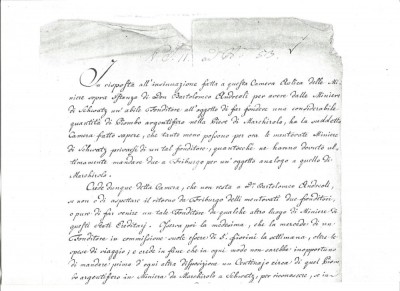 In risposta all'insinuazione fatta a questa Camera Aulica delle Mi-
niere sopra istanza di Don Bartolomeo Andreoli per avere dalle Miniere
di Schwatz un' abile Fonditore all'oggetto di far fondere una considerabile
quantità di Piombo argentifero nella Pieve di Marchirolo, ha la suddetta
Camera fatto sapere, che tanto meno possano per ora le mentovate Miniere
di Schwatz privarsi di un tal fonditore, quantoché ne hanno dovuto ul-
timamente mandare due a Friburgo per un'oggetto analogo a quello di
Marchirolo.
Crede dunque detta Camera, che non resta a Dn. Bartolomeo Andreoli,
se non o di aspettare il ritorno da Friburgo delli mentovati due fonditori,
o pure di far venire un tale Fonditore da qualche altro luogo di Miniere di
questi Stati Ereditarj. Osserva poi la medesima, che la mercede di un
Fonditore in commissione suole essere di 8. fiorini la settimana, oltre le
spese di viaggio, e crede in fine che in ogni modo non sarebbe inopportuno
di mandare prima d'ogni altra disposizione un Centinajo circa di quel Piom-
bo argentifero in Miniera da Marchirolo a Schwatz, per riconoscere, se in-